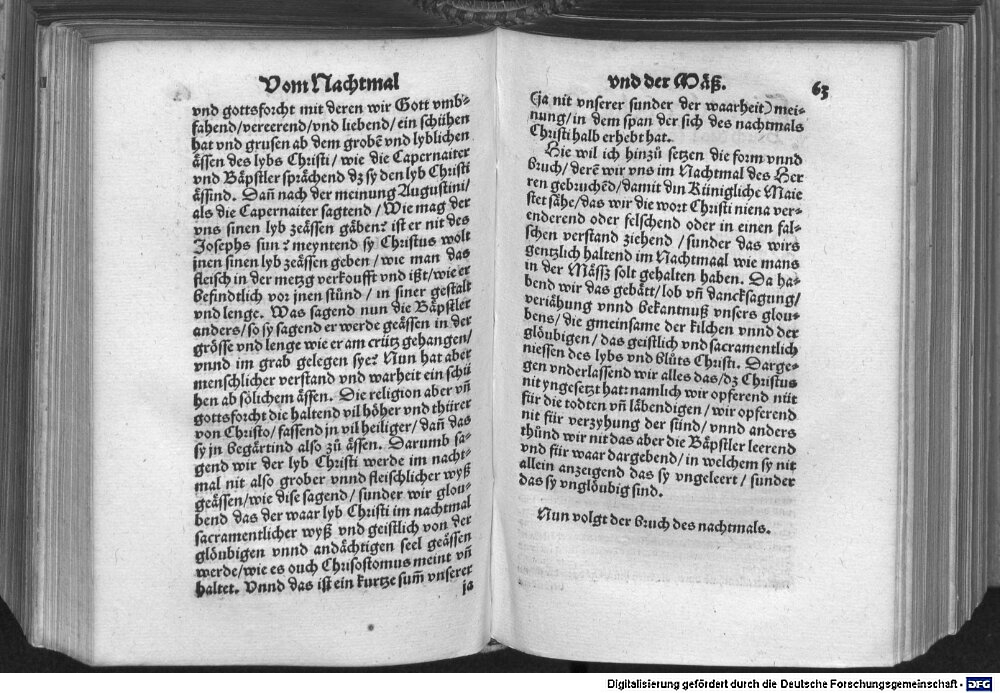 Vom Nachtmal
vnd gottsforcht mit deren wir Gott vmb-
fahend/vereerend/vnd liebend/ein schühen
hat vnd grusen ab dem grobē vnd lyblichen
ässen des lybs Christi/ wie die Capernaiter
vnd Bäpstler sprächend dz sy den lyb Christi
ässind. Dañ nach der meinung Augustini/
als die Capernaiter sagtend/Wie mag der
vns sinen lyb zeässen gäben? ist er nit des
Josephs sun? meyntend sy Christus wölt
jnen sinen lyb zeässen geben/ wie man das
fleisch in der metzg verkoufft vnd ißt/wie er
befindtlich vor jnen stünd/ in siner gestalt
vnd lenge. Was sagend nun die Bäpstler
anders/so sy sagend er werde geässen in der
grösse vnd lenge wie er am crütz gehangen/
vnnd im grab gelegen sye? Nun hat aber
menschlicher verstand vnd warheit ein schü
hen ab sölichem ässen. Die religion aber vñ
gottsforcht die haltend vil höher vnd thürer
von Christo/fassend jn vil heiliger/ dañ das
sy jn begärtind also zů ässen. Darumb sa-
gend wir der lyb Christi werde im nacht-
mal nit also grober vnnd fleischlicher wyß
geässen/wie dise sagend/ sunder wir glou-
bend das der waar lyb Christi im nachtmal
sacramentlicher wyß vnd geistlich von der
glöubigen vnnd andächtigen seel geässen
werde/wie es ouch Chrisostomus meint vñ
haltet. Vnnd das ist ein kurtze sum̄ vnserer
ja
vnd der Mäß.
63
(ja nit vnserer sunder der waarheit) mei-
nung/in dem span der sich des nachtmals
Christi halb erhebt hat.
Hie wil ich hinzů setzen die form vnnd
bruch/ derē wir vns im Nachtmal des Her
ren gebruchēd/damit din Künigliche Maie
stet sähe/das wir die wort Christi niena ver-
enderend oder felschend oder in einen fal-
schen verstand ziehend/sunder das wirs
gentzlich haltend im Nachtmaal wie mans
in der Mässz solt gehalten haben. Da ha-
bend wir das gebätt/lob vñ dancksagung/
veriähung vnnd bekantnuß vnsers glou-
bens/die gmeinsame der kilchen vnnd der
glöubigen/das geistlich vnd sacramentlich
niessen des lybs vnd blůts Christi. Darge-
gen vnderlassend wir alles das/dz Christus
nit yngesetzt hat: namlich wir opferend nüt
für die todten vñ läbendigen/wir opferend
nit für verzyhung der sünd/vnnd anders
thůnd wir nit das aber die Bäpstler leerend
vnd für waar dargebend/in welchem sy nit
allein anzeigend das sy vngeleert/ sunder
das sy vnglöubig sind.
Nun volgt der bruch des nachtmals.
Digitalisierung gefördert durch die Deutsche Forschungsgemeinschaft - DFG